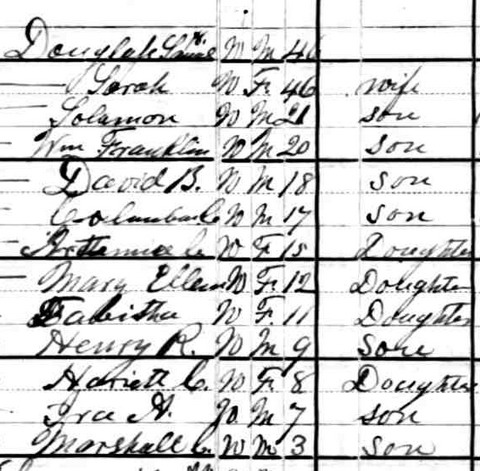 Douglass W M 46
Sarah W F 46 wife
Solamon W M 21 son
Wm Franklin W M 20 son
David B. W M 18 son
Columbus C W M 17 son
C. W F 15 Daughter
Mary Ellen W F 12 Daughter
Tabitha W F 11 Daughter
Henry R. W M 9 son
Hariett C. W F 8 Daughter
Ira A. W M 7 son
Marshall C. W M 3 son